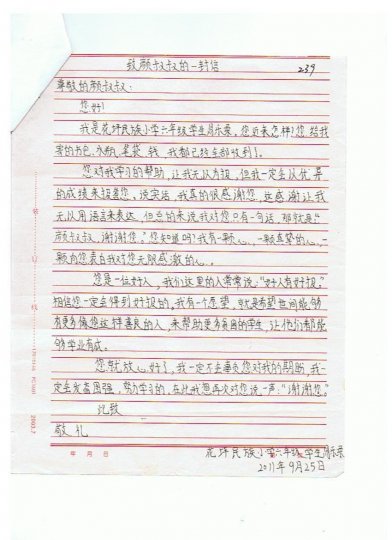 致颜叔叔的一封信
239
尊敬的颜叔叔:
您好!
我是花坪民族小学六年级学生周乐荣,您近来怎样!您给我
寄的书包、水瓶、笔袋、钱,我都已经全部收到了。
您对我学习的帮助,让我无以为报,但我一定会以优异
的成绩来报答您。说实话,我真的很感谢您,这感谢让我
无以用语言来表达,但总的来说我对您只有一句话,那就是“
颜叔叔,谢谢您。”您知道吗?我有一颗心,一颗真挚的心,一
颗向您表白我对您无限感激的心。
您是一位好人,我们这里的人常常说:“好人有好报。”
相信您一定会得到好报的。我有一个愿望,就是希望世间能够
有更多像您这样善良的人,来帮助更多贫困的学生,让他们都能
够学业有成。
您就放心好了,我一定不会辜负您对我的期盼,我一
定会发奋图强,努力学习的,在此我想再次对您说一声:“谢谢您。”
此致
敬礼
花坪民族小学六年级学生周乐荣
2011年9月25日
年 月 日
装订线